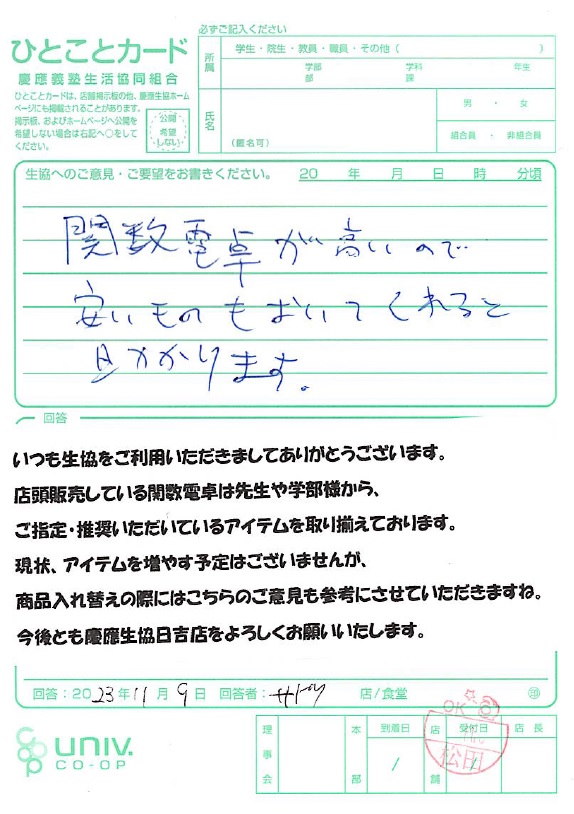 必ずご記入ください
ひとことカード
慶應義塾生活協同組合
ひとことカードは、店舗掲示板の他、慶應生協ホーム
ページにも掲載されることがあります。
掲示板、およびホームページへ公開を
希望しない場合は右記へ○をして
ください。
公開
希望
しない
所属
学生・院生・教員・職員・その他（ ）
学部 学科 年生
部 課
氏名
（匿名可）
男 ・ 女
組合員 ・ 非組合員
生協へのご意見・ご要望をお書きください。 20 年 月 日 時 分頃
関数電卓が高いので
安いものもおいてくれると
助かります。
回答
いつも生協をご利用いただきましてありがとうございます。
店頭販売している関数電卓は先生や学部様から、
ご指定・推奨いただいているアイテムを取り揃えております。
現状、アイテムを増やす予定はございませんが、
商品入れ替えの際にはこちらのご意見も参考にさせていただきますね。
今後とも慶應生協日吉店をよろしくお願いいたします。
回答：2023年11月9日 回答者： 店/食堂 印
UNIV.
CO-OP
理事会
本部
到着日
/
店舗
受付日
/
店長
OK
松田